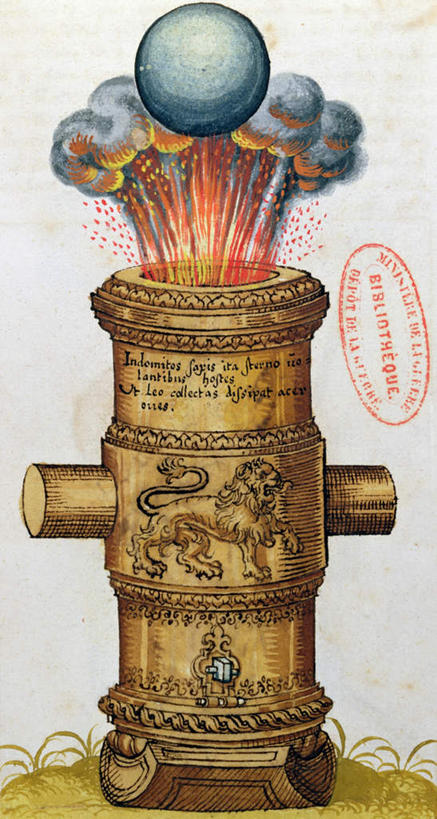 Indomitos saxis ita sterno uo=
lantibus hostes
Ut Leo collectas dissipat acer
oues.
MINISTÈRE DE LA GUERRE
BIBLIOTHÈQUE.
DÉPÔT DE LA GUERRE